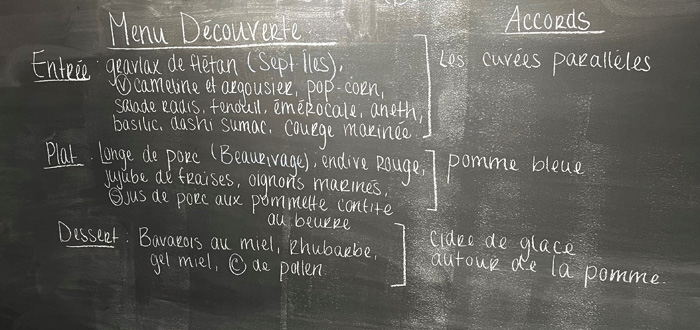 Menu Découverte
Accords
Entrée: gravlax de flétan (Sept Îles),
Ⓥ cameline et argousier, pop-corn,
salade radis, fenouil, émérocale, aneth,
basilic, dashi sumac, courge marinée.
Les cuvées parallèles
Plat: longe de porc (Beaurivage), endive rouge,
jujube de fraises, oignons marinés,
Ⓢ jus de porc aux pommette confite
au beurre
pomme bleue
Dessert: Bavarois au miel, rhubarbe,
gel miel, Ⓒ de pollen
cidre de glace
autour de la pomme.